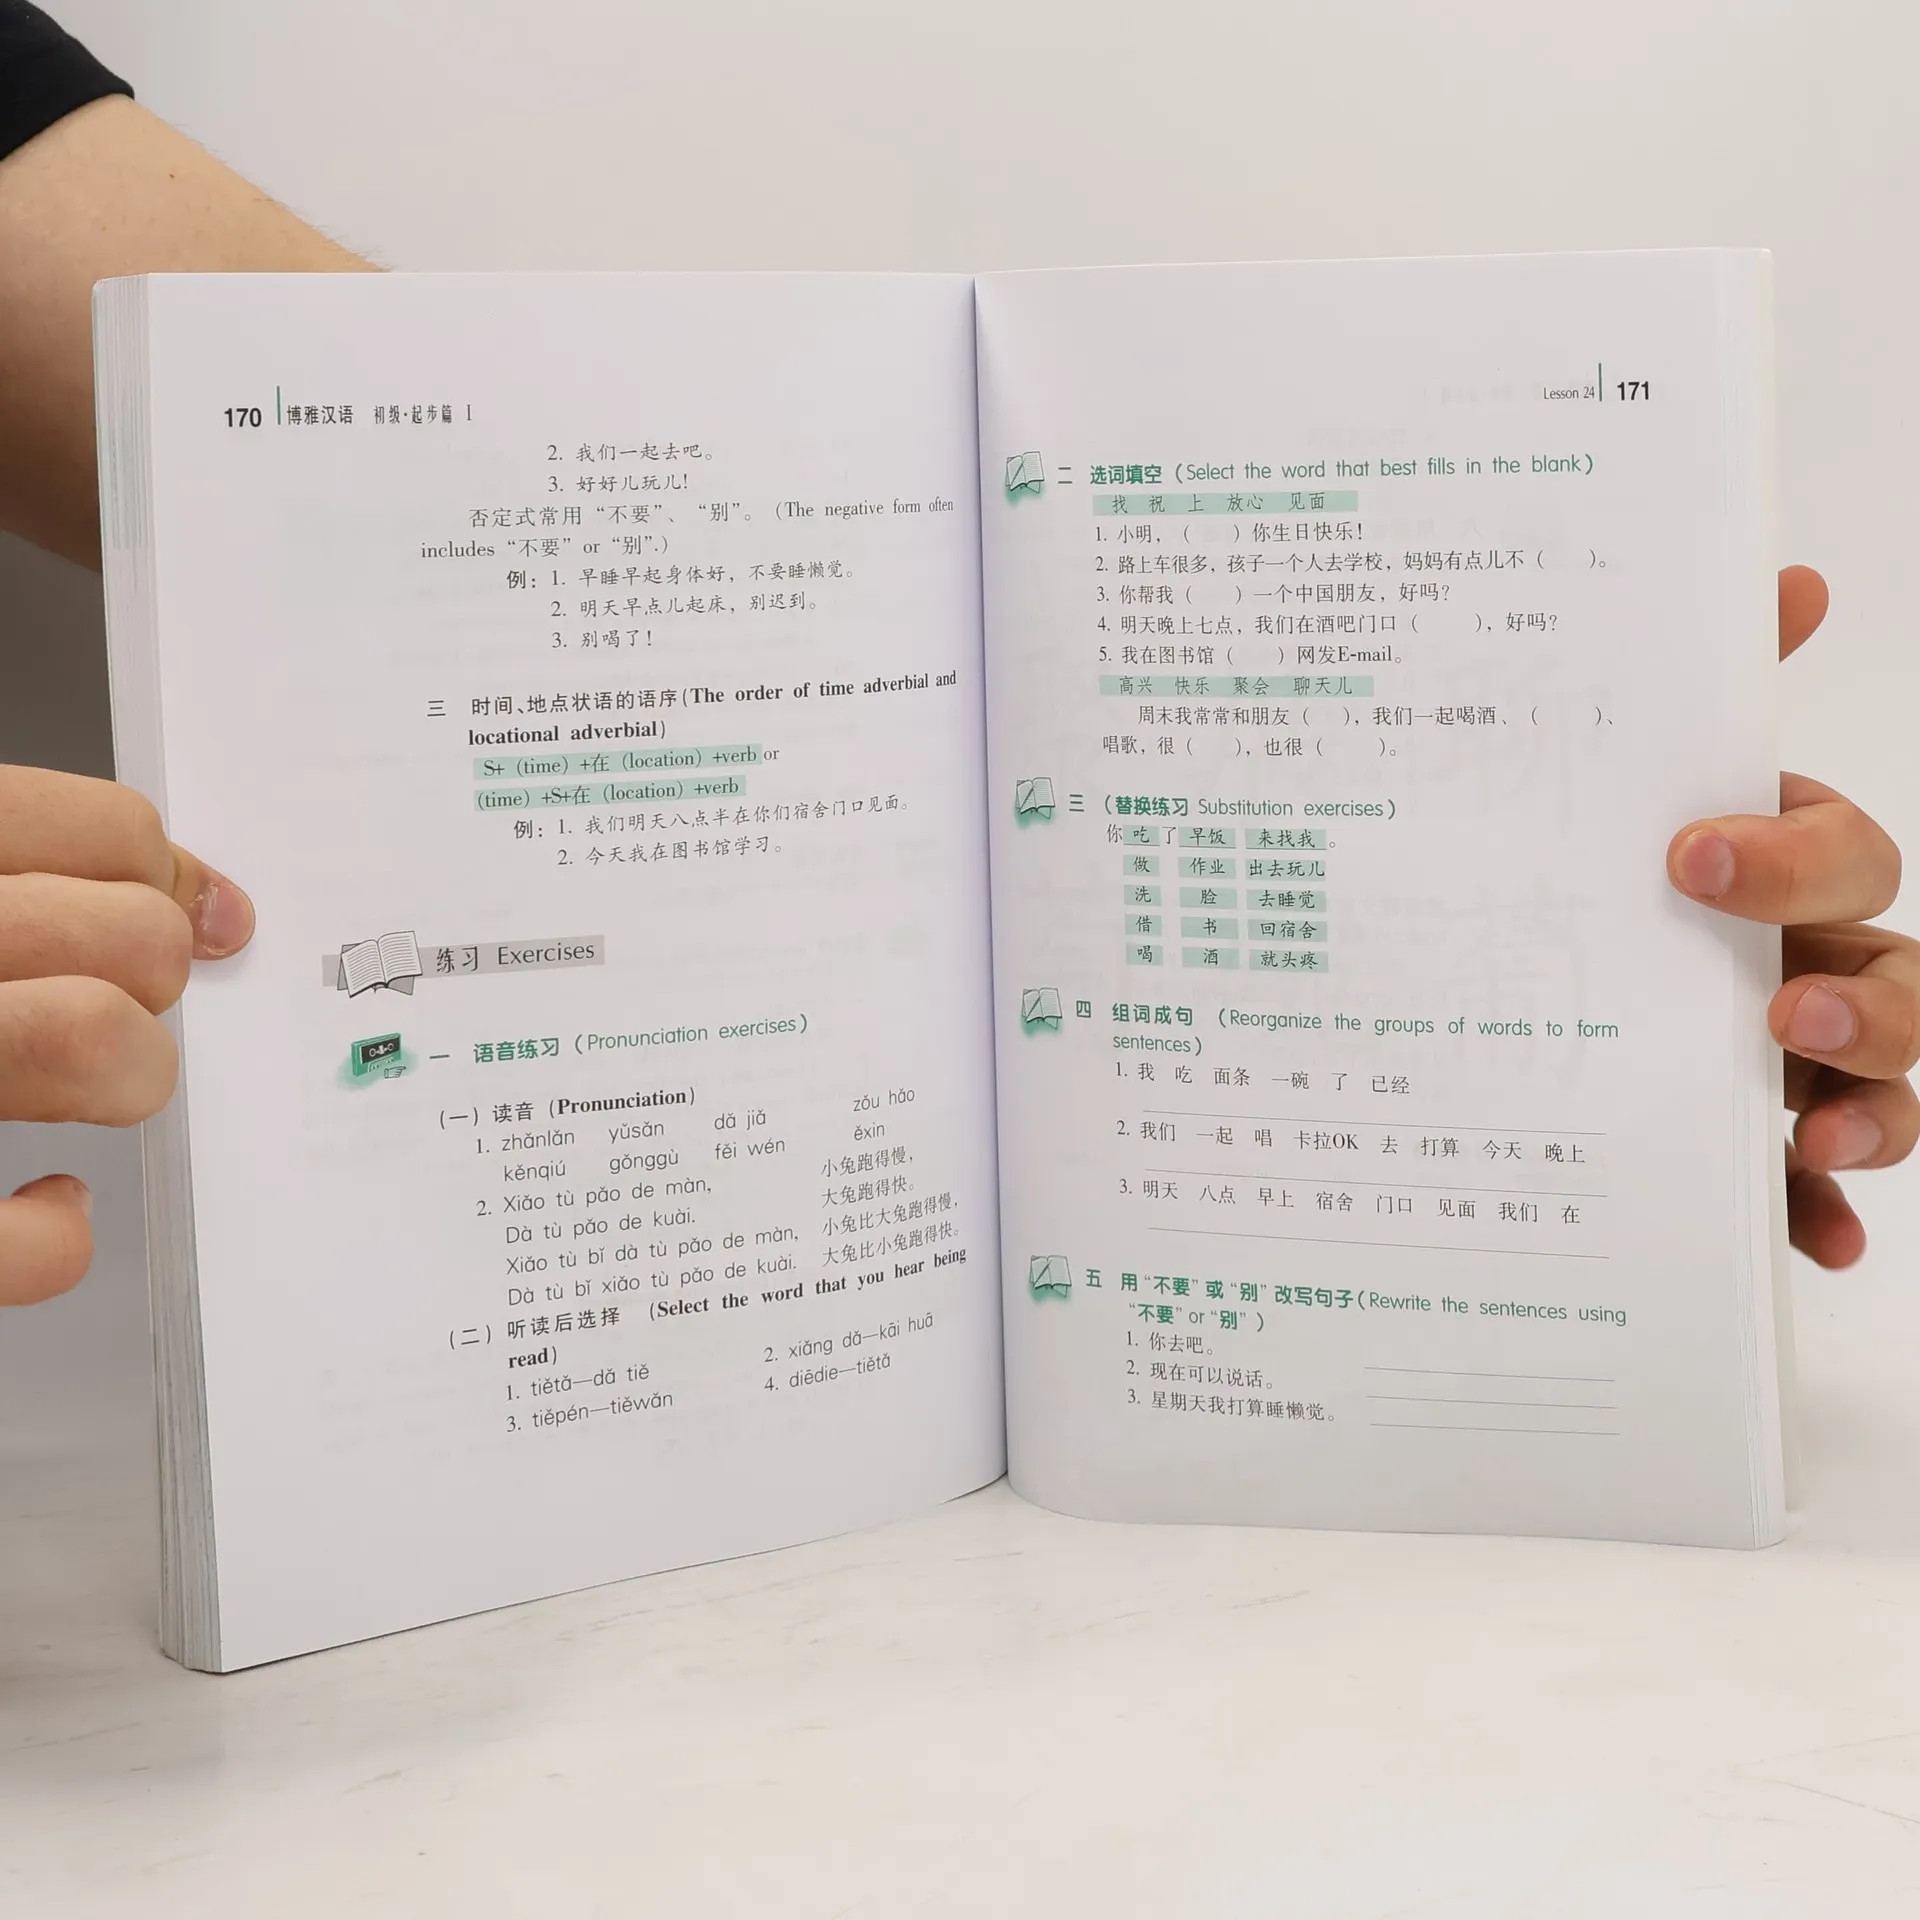 170 博雅汉语 初级·起步篇 I
2. 我们一起去吧。
3. 好好儿玩儿!
否定式常用“不要”、“别”。(The negative form often
includes “不要” or “别”.)
例: 1. 早睡早起身体好,不要睡懒觉。
2. 明天早点儿起床,别迟到。
3. 别喝了!
三 时间、地点状语的语序(The order of time adverbial and
locational adverbial)
S+(time)+在(location)+verb or
(time)+S+在(location)+verb
例: 1. 我们明天八点半在你们宿舍门口见面。
2. 今天我在图书馆学习。
练习 Exercises
一 语音练习(Pronunciation exercises)
(一)读音(Pronunciation)
1. zhǎnlǎn yǔsǎn dǎ jiǎ zǒu hǎo
kěnqiú gǒnggù fěi wén ěxin
2. Xiǎo tù pǎo de màn, 小兔跑得慢,
Dà tù pǎo de kuài. 大兔跑得快。
Xiǎo tù bǐ dà tù pǎo de màn, 小兔比大兔跑得慢,
Dà tù bǐ xiǎo tù pǎo de kuài. 大兔比小兔跑得快。
(二)听读后选择 (Select the word that you hear being
read)
1. tiětǎ—dǎ tiě 2. xiǎng dǎ—kāi huā
3. tiěpén—tiěwǎn 4. diēdie—tiětǎ
Lesson 24 171
二 选词填空(Select the word that best fills in the blank)
找 祝 上 放心 见面
1. 小明,( )你生日快乐!
2. 路上车很多,孩子一个人去学校,妈妈有点儿不( )。
3. 你帮我( )一个中国朋友,好吗?
4. 明天晚上七点,我们在酒吧门口( ),好吗?
5. 我在图书馆( )网发E-mail。
高兴 快乐 聚会 聊天儿
周末我常常和朋友( ),我们一起喝酒、( )、
唱歌,很( ),也很( )。
三 (替换练习 Substitution exercises)
你 吃 了 早饭 来找我 。
做 作业 出去玩儿
洗 脸 去睡觉
借 书 回宿舍
喝 酒 就头疼
四 组词成句 (Reorganize the groups of words to form
sentences)
1. 我 吃 面条 一碗 了 已经
2. 我们 一起 唱 卡拉OK 去 打算 今天 晚上
3. 明天 八点 早上 宿舍 门口 见面 我们 在
五 用“不要”或“别”改写句子(Rewrite the sentences using
“不要” or “别”)
1. 你去吧。
2. 现在可以说话。
3. 星期天我打算睡懒觉。